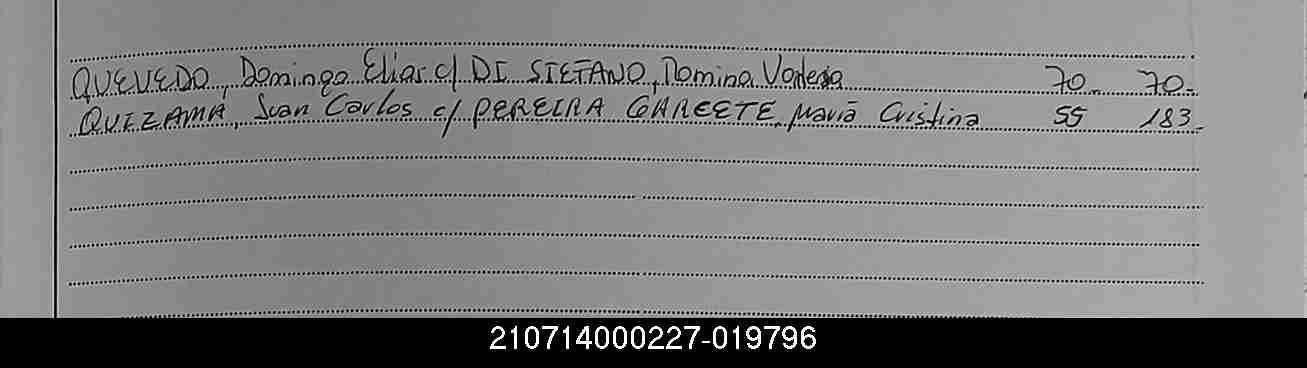 QUEVEDO, Domingo Elias c/ DI STEFANO, Romina Vanesa 70. 70.
QUEZAMA, Juan Carlos c/ PEREIRA GAREETE, María Cristina 55 183.
210714000227-019796